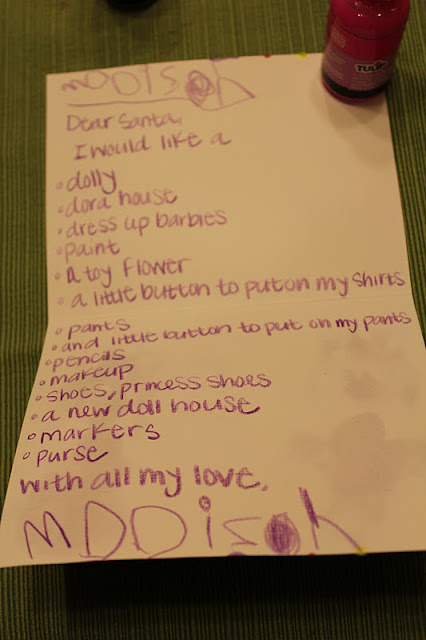 mDDisoh
TULIP
Dear Santa,
I would like a
• dolly
• dora house
• dress up barbies
• paint
• a toy flower
• a little button to put on my shirts
• pants
• and little button to put on my pants
• pencils
• makeup
• shoes, princess shoes
• a new doll house
• markers
• purse
with all my love,
mDDisoh